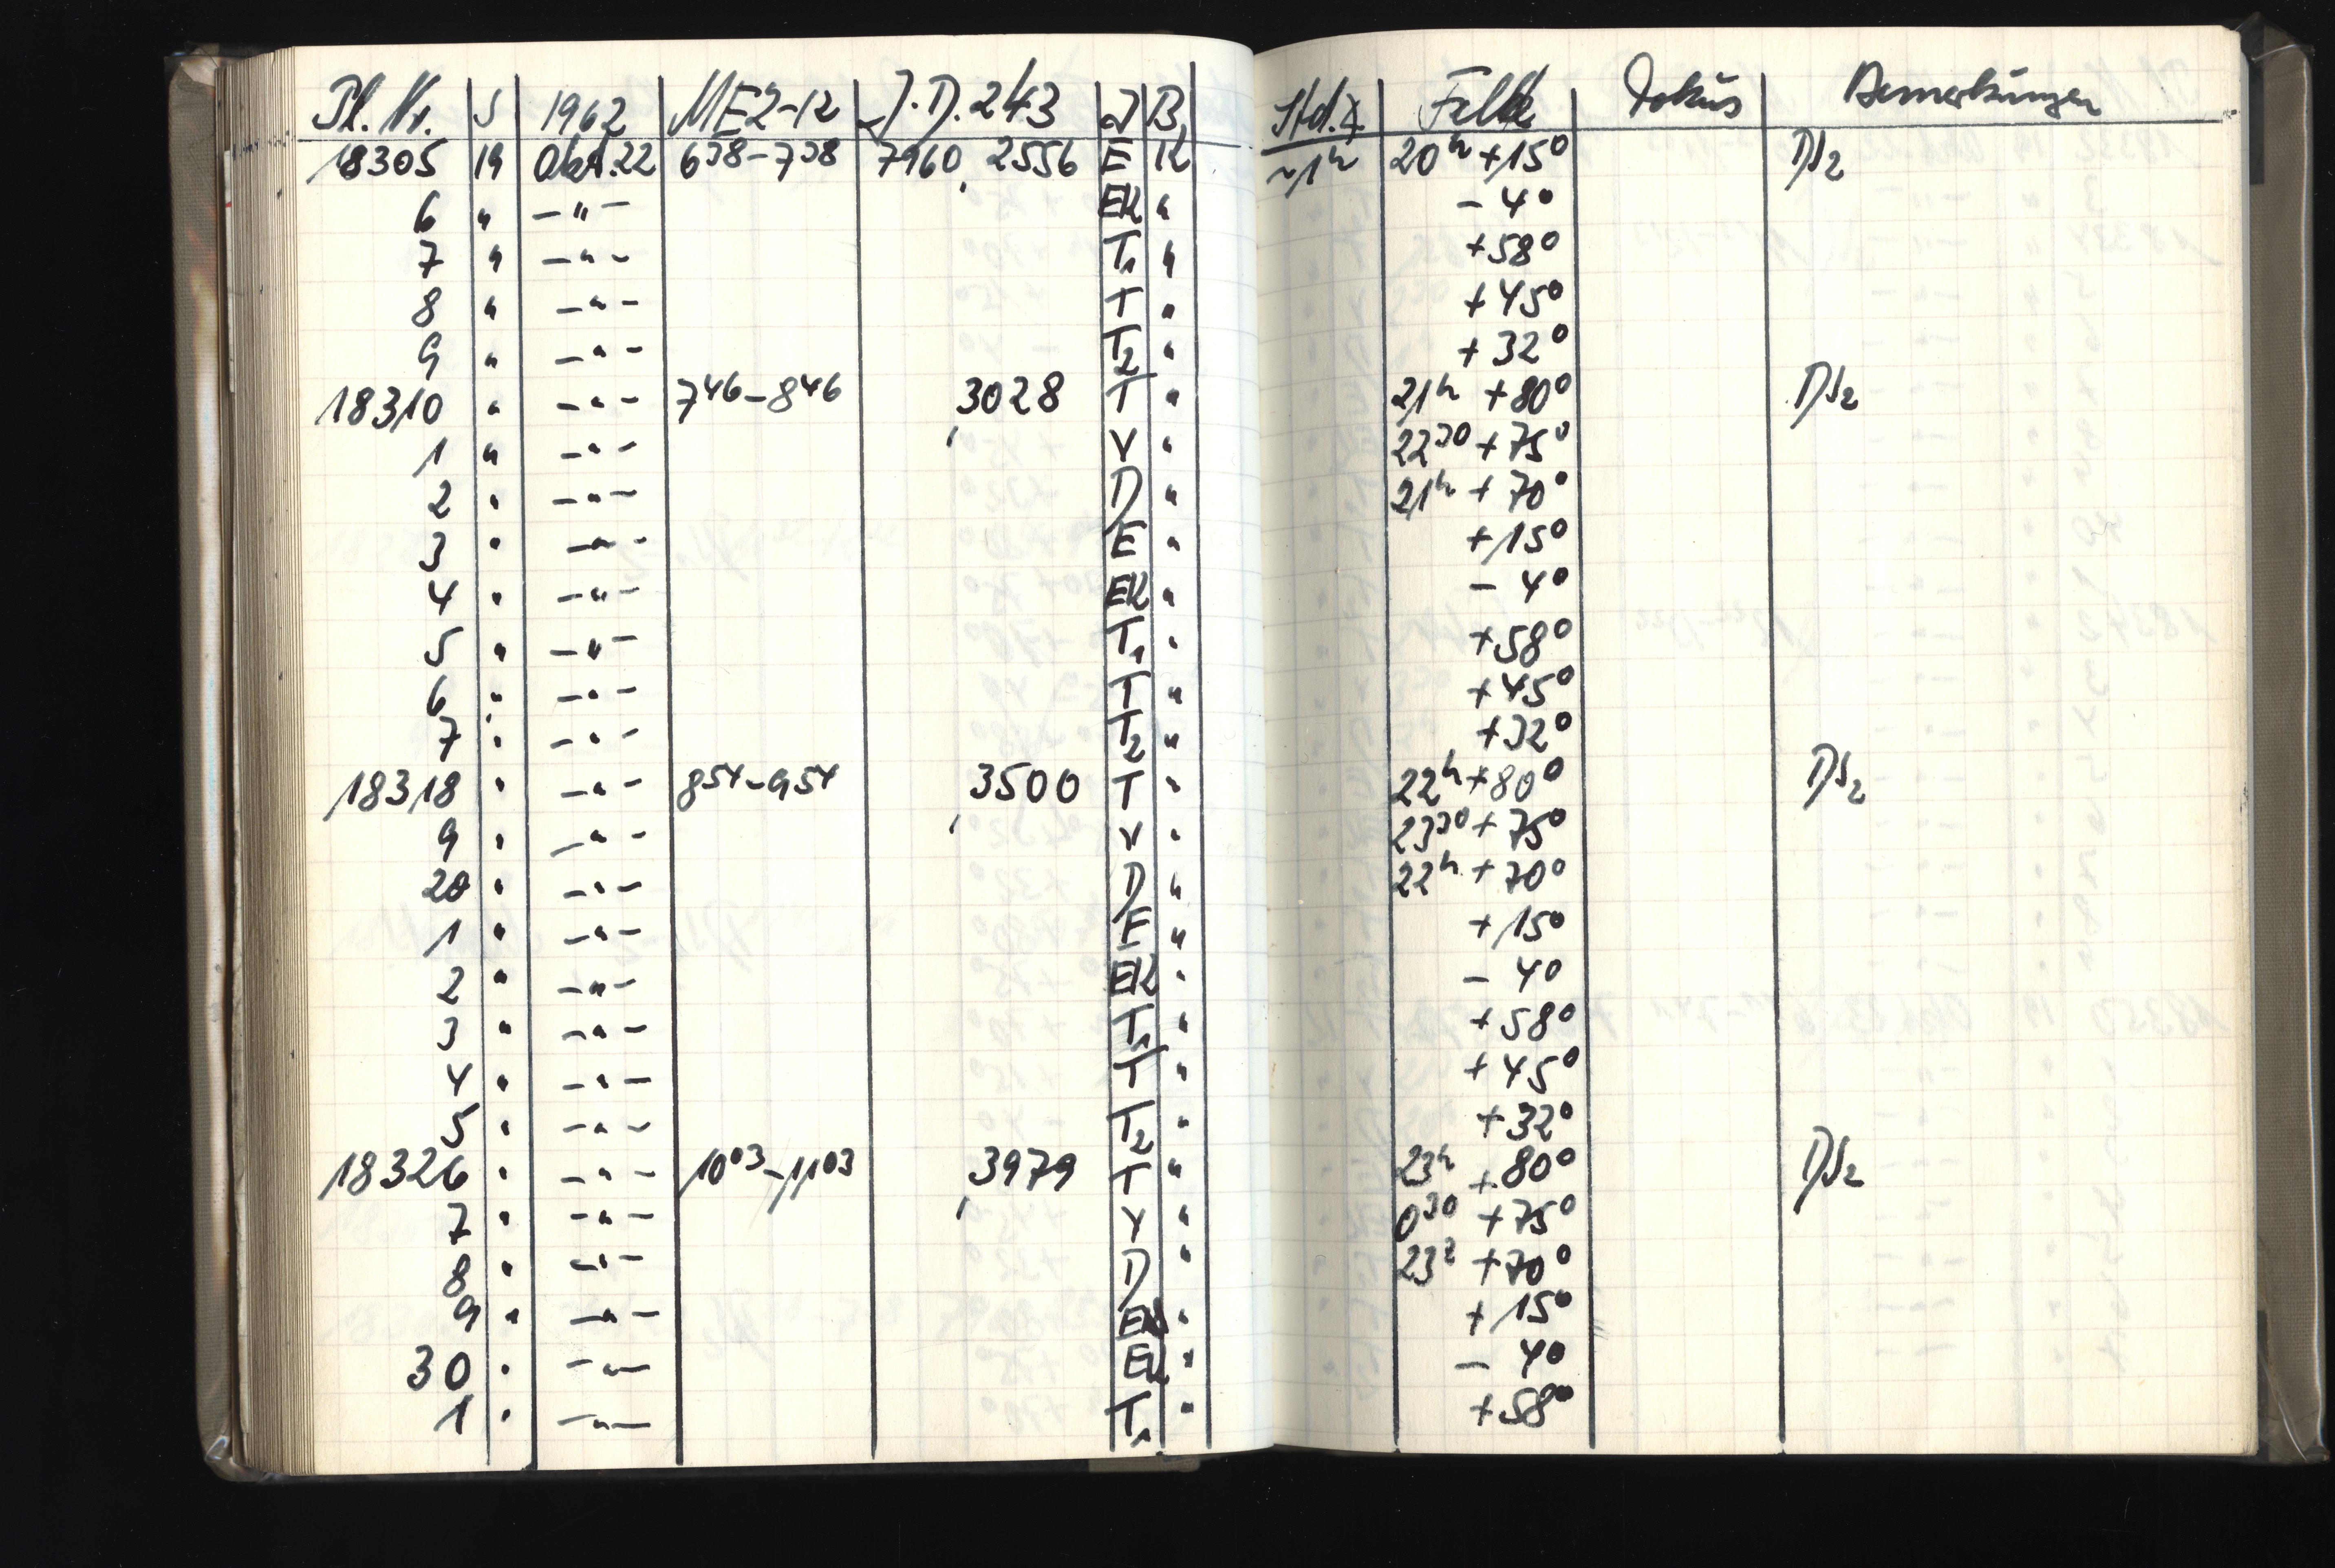 Pl. Nr. S 1962 MEZ-12 J.D. 243 J B. Std.∡ Felder Fokus Bemerkungen
18305 19 Okt. 22 6³⁸-7³⁸ 7960,2556 E K ~1ʰ 20ʰ +15° DS₂
6 " -"- EK " - 4°
7 " -"- T₁ " +58°
8 " -"- T " +45°
9 " -"- T₂ " +32°
18310 " -"- 7⁴⁶-8⁴⁶ ,3028 T " 21ʰ +80° DS₂
1 " -"- V " 22³⁰ +75°
2 " -"- D " 21ʰ +70°
3 " -"- E " +15°
4 " -"- EK " - 4°
5 " -"- T₁ " +58°
6 " -"- T " +45°
7 " -"- T₂ " +32°
18318 " -"- 8⁵⁴-9⁵⁴ ,3500 T " 22ʰ +80° DS₂
9 " -"- V " 23³⁰ +75°
20 " -"- D " 22ʰ +70°
1 " -"- E " +15°
2 " -"- EK " - 4°
3 " -"- T₁ " +58°
4 " -"- T " +45°
5 " -"- T₂ " +32°
18326 " -"- 10⁰³-11⁰³ ,3979 T " 23ʰ +80° DS₂
7 " -"- V " 0³⁰ +75°
8 " -"- D " 23ʰ +70°
9 " -"- " +15°
30 " -"- EK " - 4°
1 " -"- T₁ " +58°